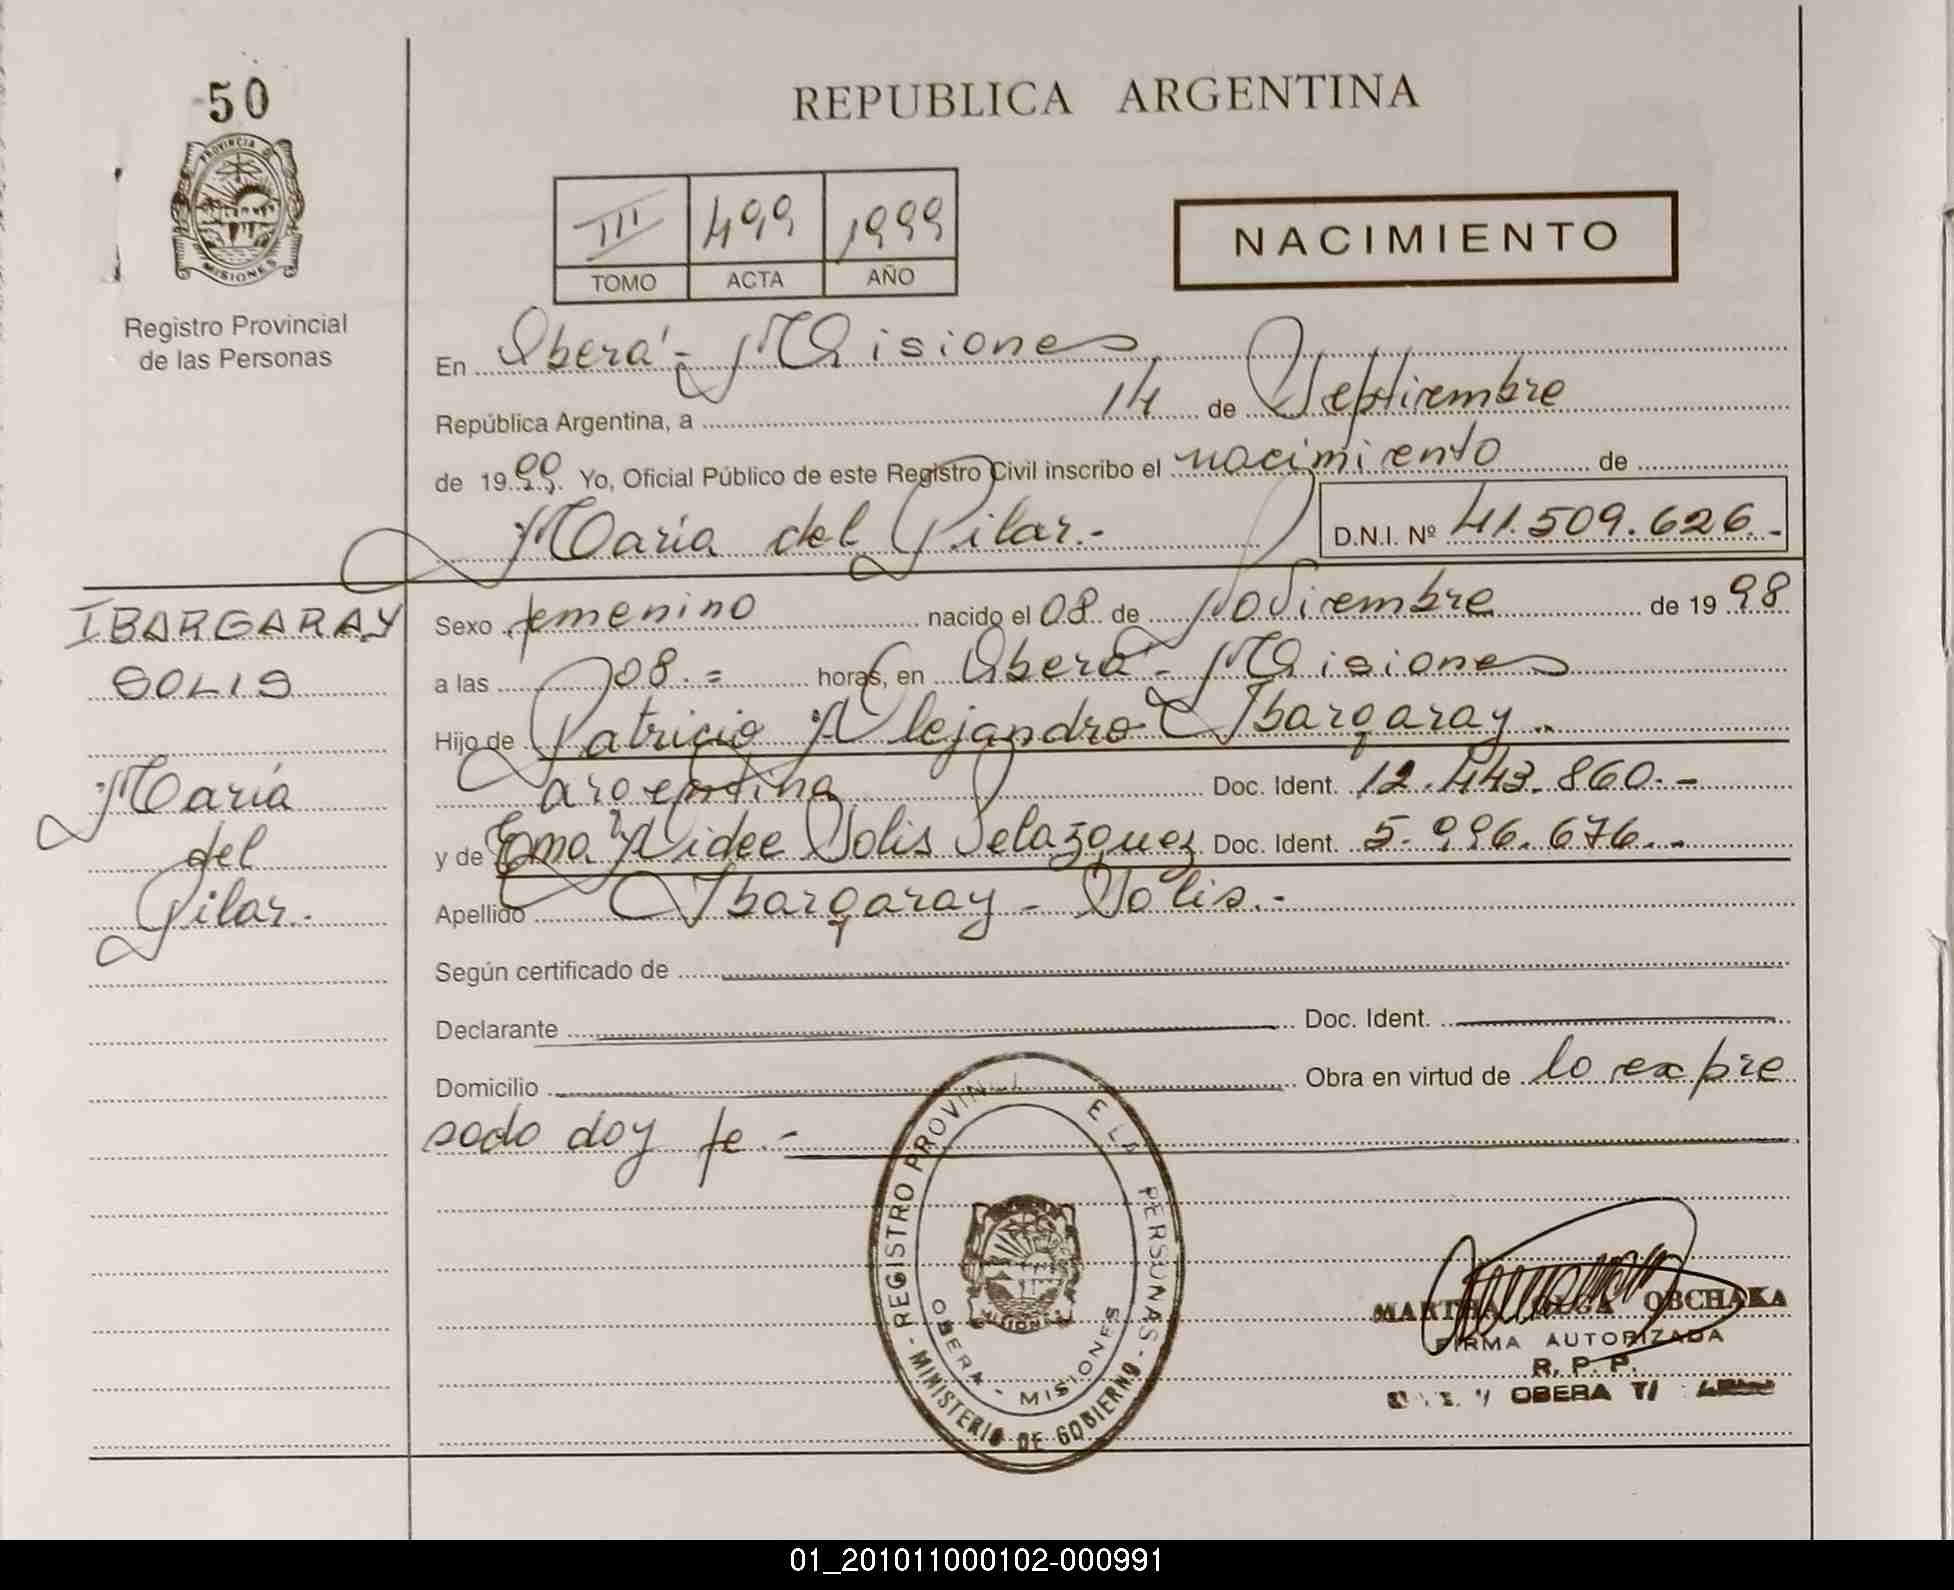 50
PROVINCIA D
MISIONES
Registro Provincial
de las Personas
REPUBLICA ARGENTINA
III 499 1999
TOMO ACTA AÑO
NACIMIENTO
En Oberá - Misiones
República Argentina, a 14 de Septiembre
de 1999. Yo, Oficial Público de este Registro Civil inscribo el nacimiento de
María del Pilar.- D.N.I. Nº 41.509.626.-
IBARGARAY
SOLIS
María
del
Pilar.-
Sexo femenino nacido el 08 de Noviembre de 1998
a las 08.= horas, en Oberá - Misiones
Hijo de Patricio Alejandro Ibargaray..
argentina Doc. Ident. 12.443.860.-
y de Ema Aidee Solis Velazquez Doc. Ident. 5.996.676.-
Apellido Ibargaray - Solis.-
Según certificado de
Declarante Doc. Ident.
Domicilio Obra en virtud de lo expre
sado doy fe.-
REGISTRO PROVIN E LA PERSONAS
- MINISTERIO DE GOBIERNO -
OBERA - MISIONES
MISIONES
MARTHA OLGA OBCHAKA
FIRMA AUTORIZADA
R. P. P.
OBERA
01_201011000102-000991